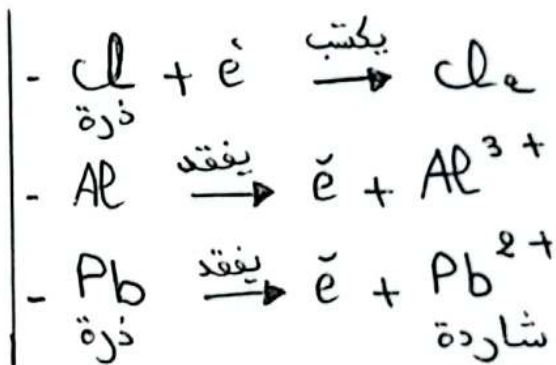 - Cl + e⁻ يكتسب → Cl₂
ذرة
- Al يفقد → e⁻ + Al³⁺
- Pb يفقد → e⁻ + Pb²⁺
ذرة شاردة